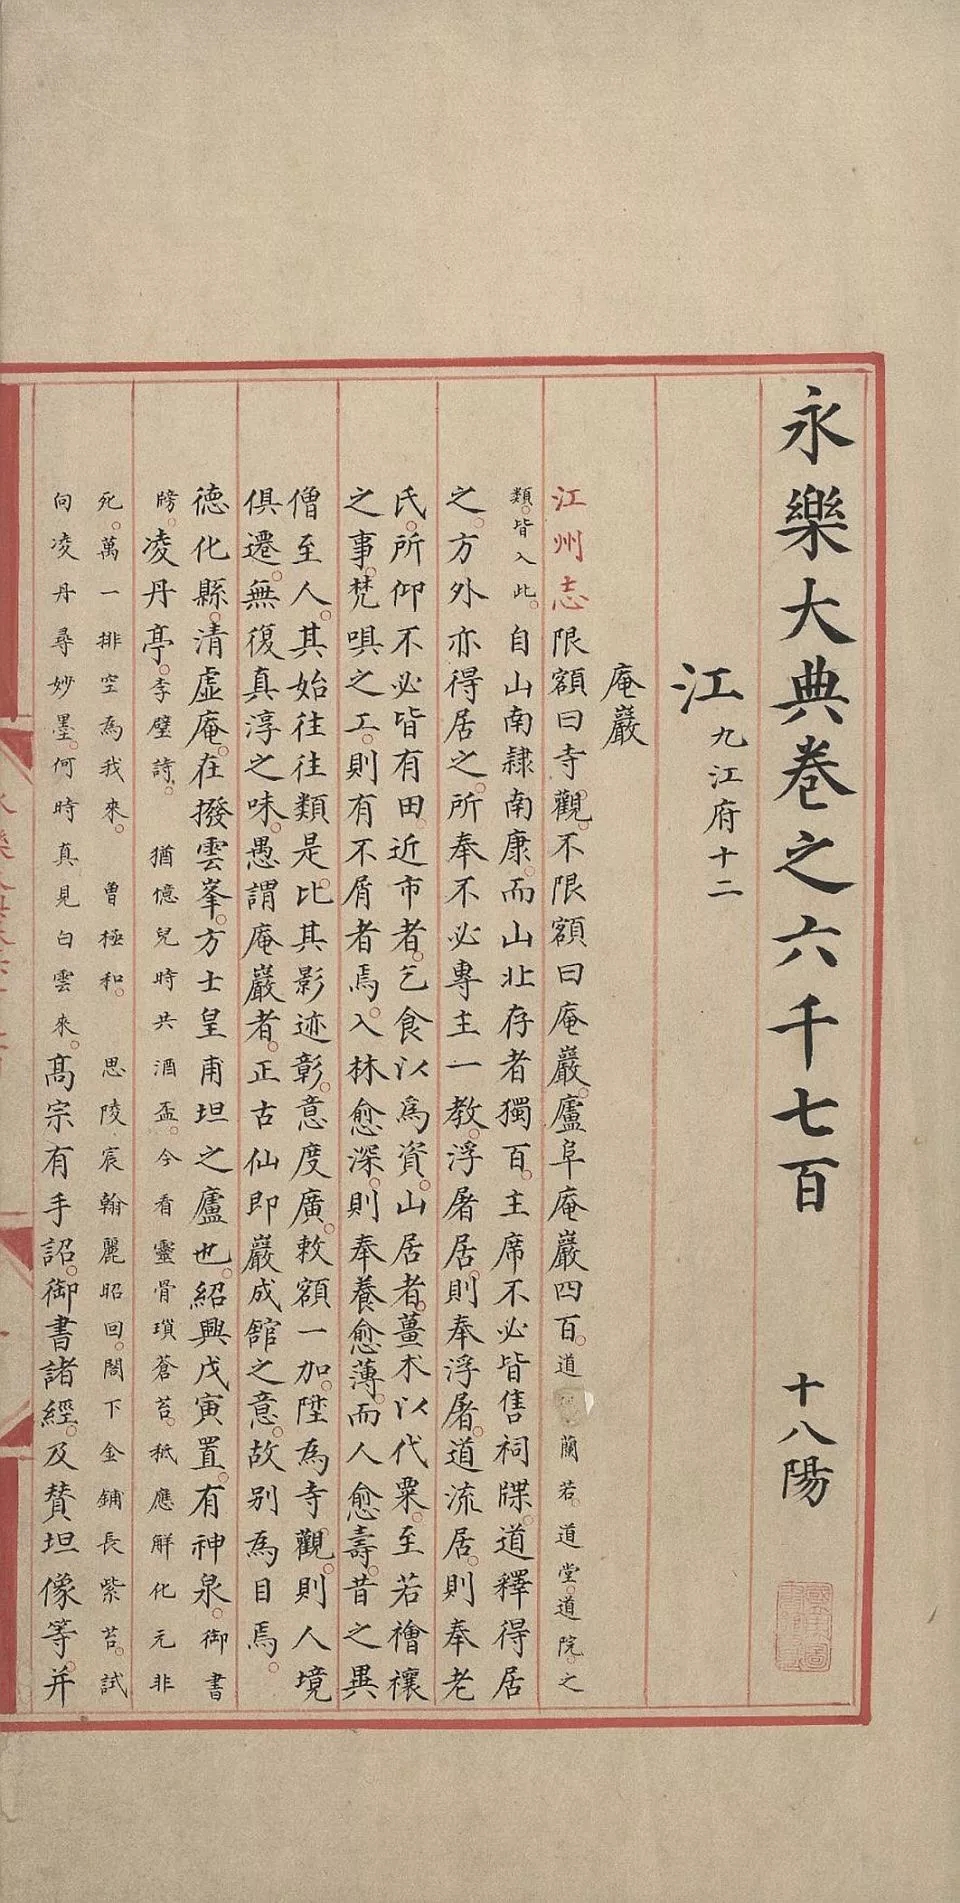 永樂大典卷之六千七百 十八陽
江 九江府十二
庵巖
江州志限額曰寺觀不限額曰庵巖廬阜庵巖四百道 蘭若道堂道院之
類皆入此自山南隸南康而山北存者獨百主席不必皆售祠牒道釋得居
之方外亦得居之所奉不必專主一教浮屠居則奉浮屠道流居則奉老
氏所仰不必皆有田近市者乞食以爲資山居者薑朮以代粟至若禬禳
之事梵唄之工則有不屑者焉入林愈深則奉養愈薄而人愈壽昔之異
僧至人其始往往類是比其影迹彰意度廣敕額一加陞為寺觀則人境
俱遷無復真淳之味愚謂庵巖者正古仙即巖成館之意故别為目焉
德化縣清虛庵在撥雲峯方士皇甫坦之廬也紹興戊寅置有神泉御書
牓凌丹亭李壁詩 猶憶兒時共酒盃今看靈骨瑣蒼苔秪應解化元非
死萬一排空為我來 曽極和 思陵宸翰麗昭回閤下金鋪長紫苔試
向凌丹尋妙墨何時真見白雲來高宗有手詔御書諸經及賛坦像等并